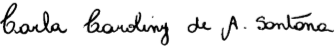 Carla Caroliny de A. Santana